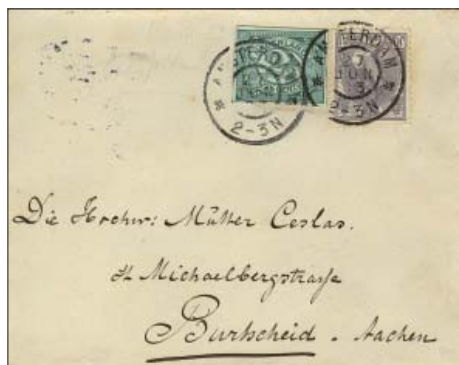 AMSTERDAM
2-3N
AMSTERDAM
27
JUN
2-3N
Die Hochw: Mütter Ceslas.
Michaelbergstrasse
Burtscheid - Aachen